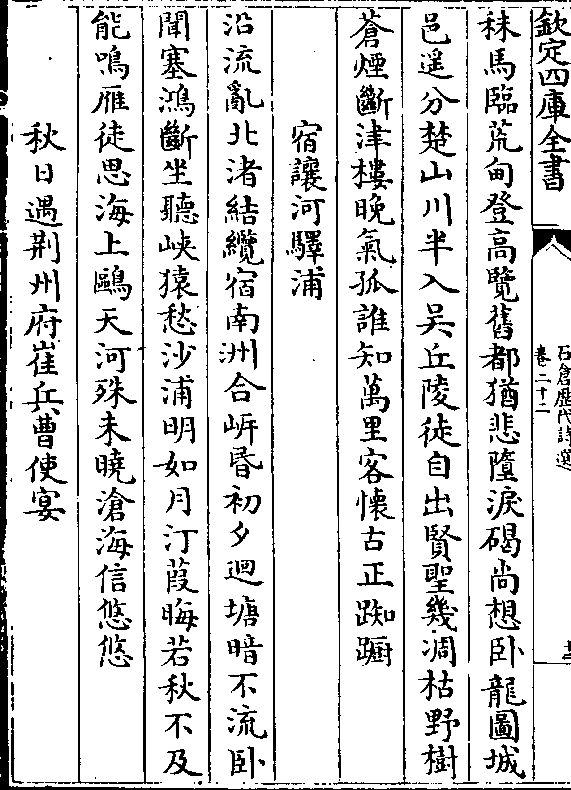 欽定四庫全書
石倉歷代詩選
卷二十二
秣馬臨荒甸登高覽舊都猶悲墮淚碣尚想卧龍圖城
邑遥分楚山川半入吴丘陵徒自出賢聖幾凋枯野樹
蒼煙斷津樓晚氣孤誰知萬里客懷古正踟蹰
宿讓河驛浦
沿流亂北渚結纜宿南洲合㟁昏初夕迴塘暗不流卧
聞塞鴻斷坐聽峽猿愁沙浦明如月汀葭晦若秋不及
能鳴雁徒思海上鷗天河殊未曉滄海信悠悠
秋日遇荆州府崔兵曹使宴